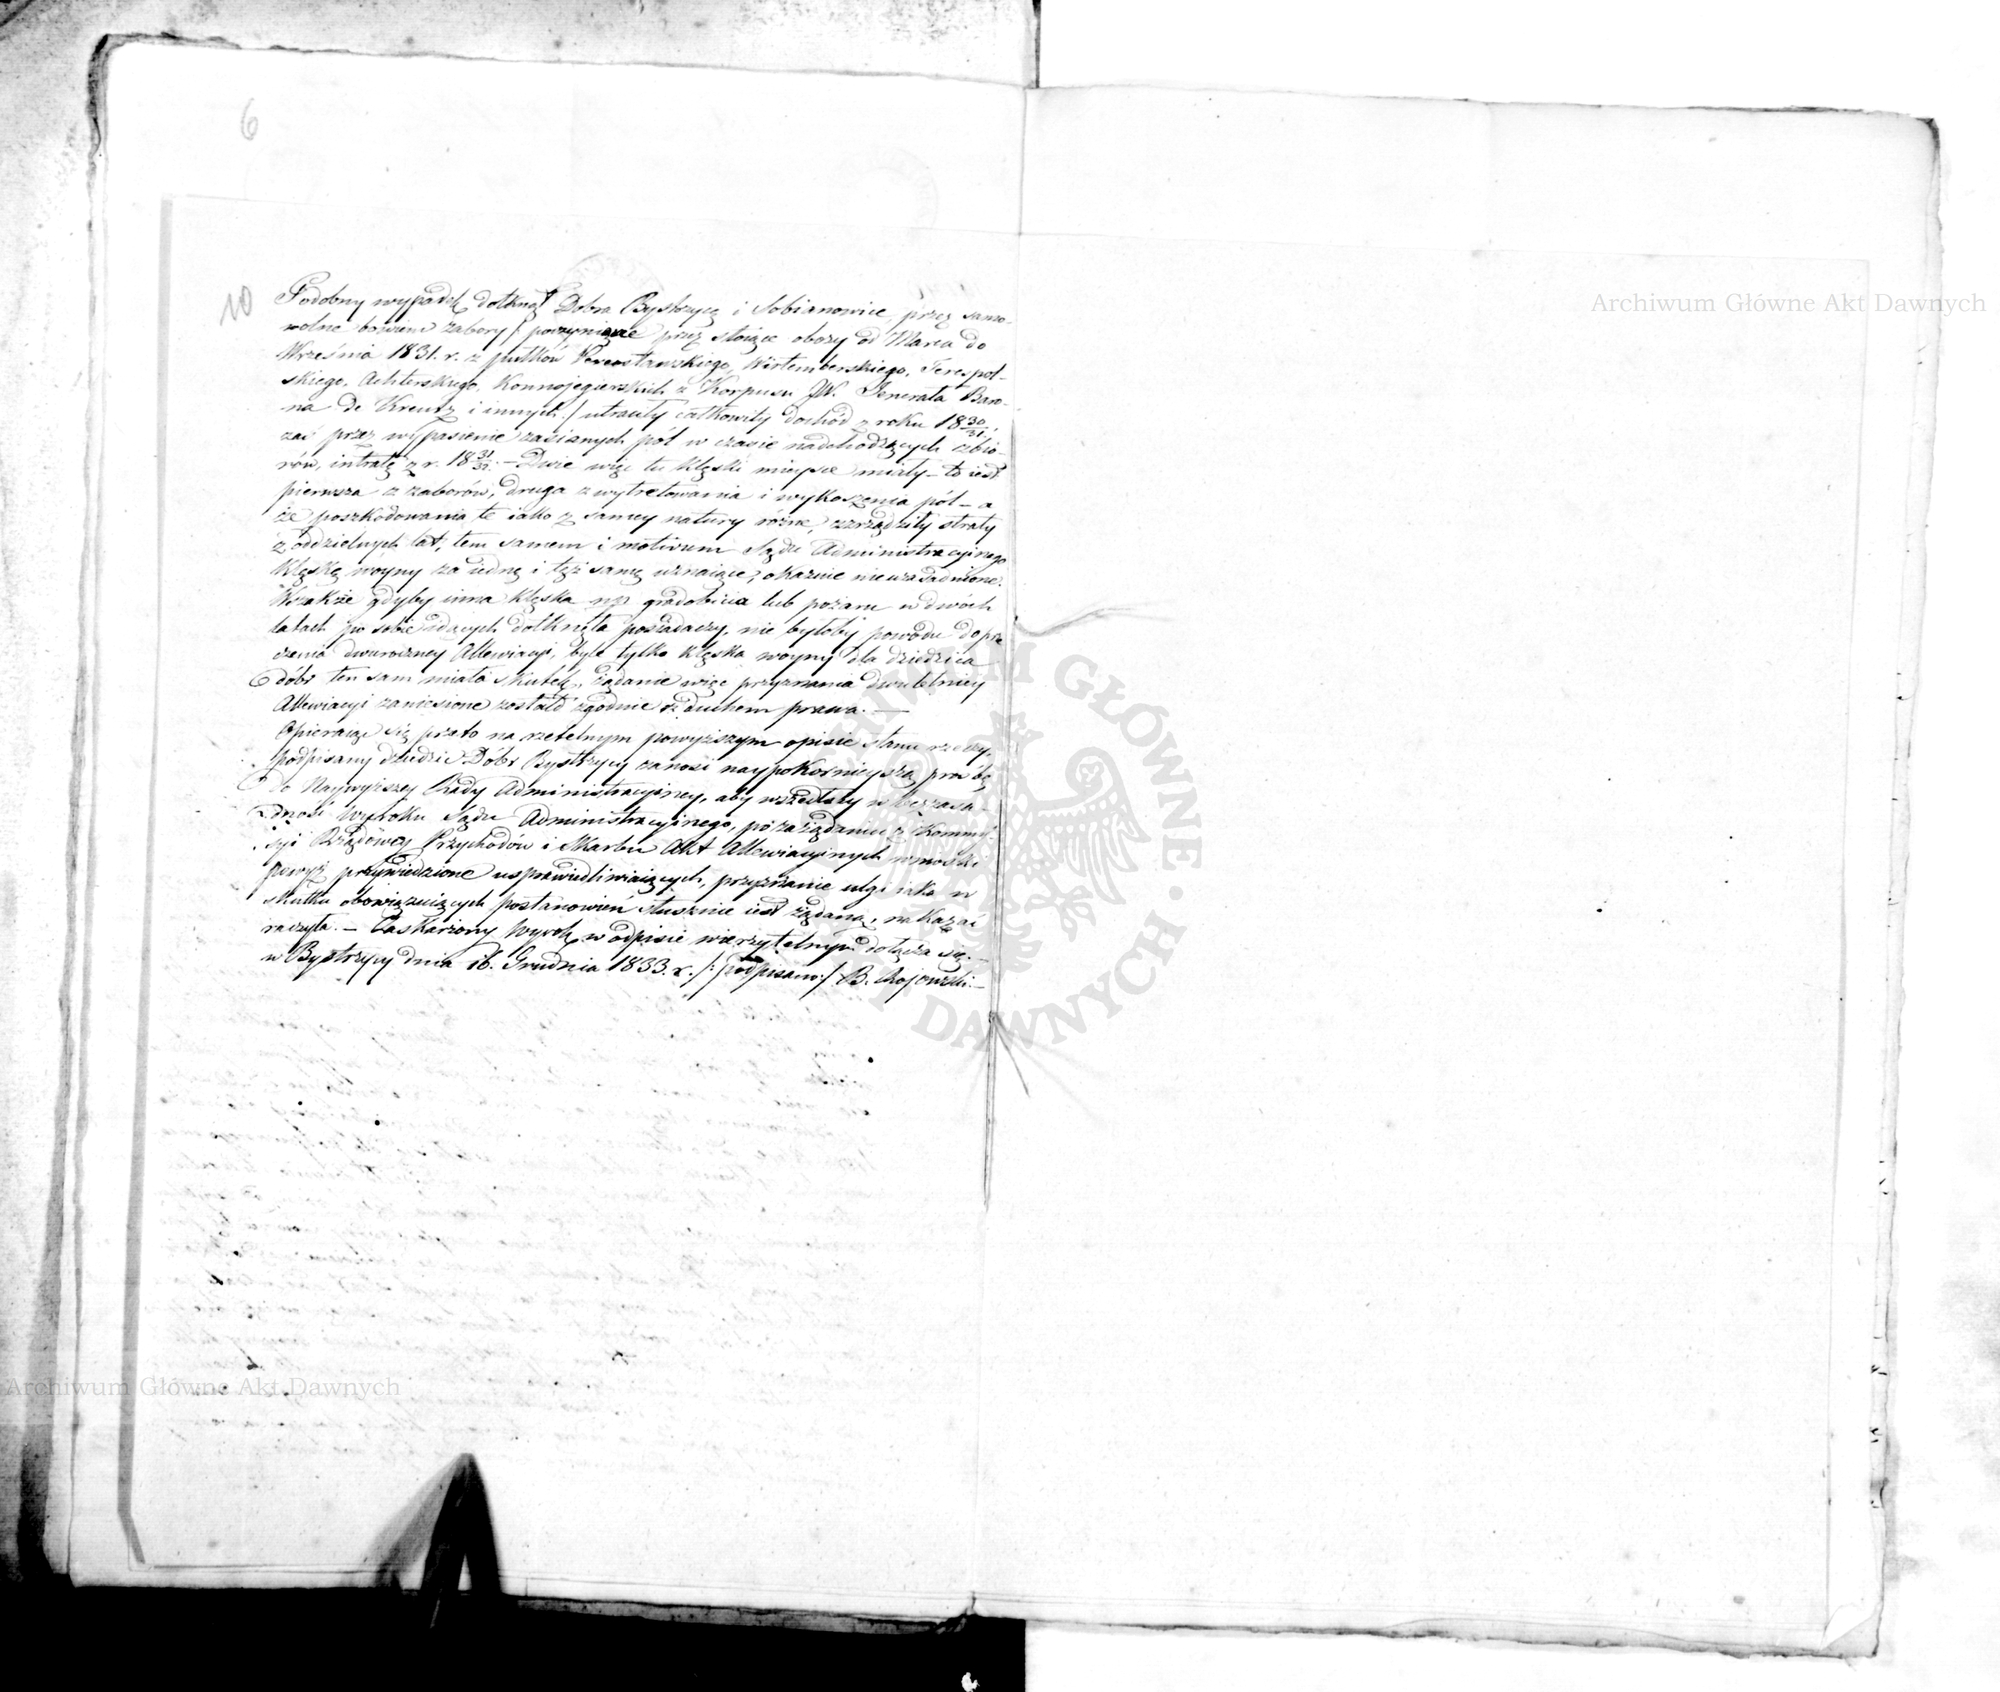 6
10
Podobny wypadek dotknął Dobra Bystrzycę i Sobianowice, przez samo-
wolne bowiem zabory /: poczynione przez stojące obozy od Marca do
Września 1831. r. z pułków Wirtemberskiego, Terespol-
skiego, Achterskiego, Konnojegierskich z Korpusu JW. Jenerała Baro-
na de Kreutz i innych :/ utraciły całkowity dochód z roku 18 30/31.,
zaś przez wypasienie zasianych pól w czasie nadchodzących zbio-
rów, intratę z r. 18 31/32. – Dwie więc tu klęski mieysce miały – to iest
pierwsza z zaborów, druga z wytretowania i wykoszenia pól – a
że poszkodowania te iako z samey natury różne, zrządziły straty
z oddzielnych lat, tem samem i motivum Sądu Administracyinego
Klęskę woyny za iednę i tęż samę uznaiące, okaże nieuzasadnione.
Wszakże gdyby inna klęska np. gradobicia lub pożaru w dwóch
latach po sobie idących dotknęła posiadaczy, nie byłoby powodu do prze
czenia dwuroczney Allewiacyi, byle tylko klęska woyny dla dziedzica
dóbr ten sam miała skutek, żądanie więc przyznania dwuletniey
Allewiacyi zaniesione zostało zgodnie z duchem prawa. —
Opieraiąc się przeto na rzetelnym powyższym opisie stanu rzeczy,
podpisany dziedzic Dóbr Bystrzycy zanosi naypokornieyszą proźbę
do Naywyższey Rady Administracyiney, aby wszedłszy w bezzasa-
dność wyroku Sądu Administracyinego, po zażądaniu z Kommis-
syi Rządowey Przychodów i Skarbu Akt Allewiacyinych wnioski
powyż przywiedzione usprawiedliwiaiących, przyznanie ulgi iaka w
skutku obowiązuiących postanowień słusznie iest żądaną, nakazać
raczyła. – Zaskarżony Wyrok w odpisie wierzytelnym dołącza się. –
w Bystrzycy dnia 16. Grudnia 1833. r. /: podpisano :/ B. Rojowski. –
Archiwum Główne Akt Dawnych
ARCHIWUM GŁÓWNE AKT DAWNYCH
Archiwum Główne Akt Dawnych